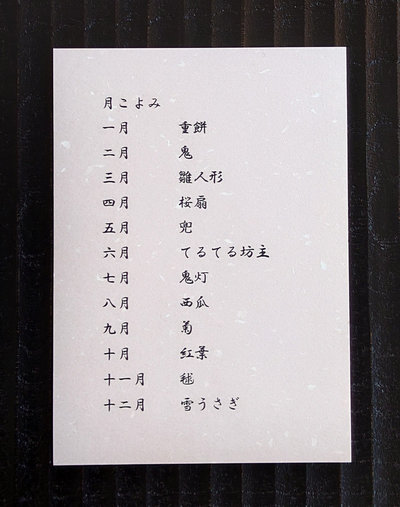 月こよみ
一月 重餅
二月 鬼
三月 雛人形
四月 桜扇
五月 兜
六月 てるてる坊主
七月 鬼灯
八月 西瓜
九月 菊
十月 紅葉
十一月 毬
十二月 雪うさぎ